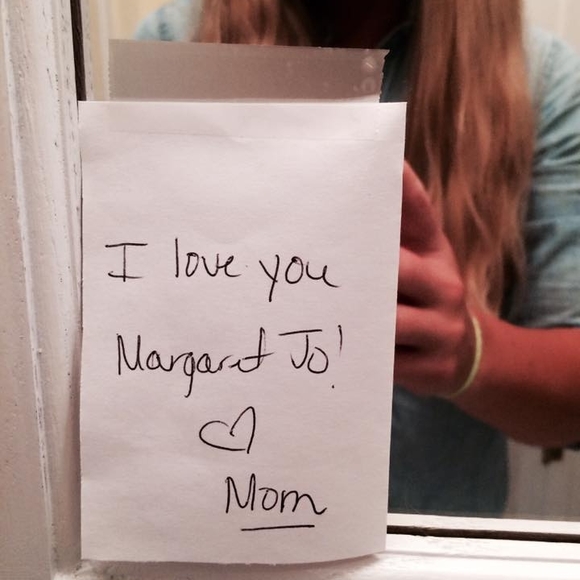 I love you
Margaret Jo!
♡
Mom